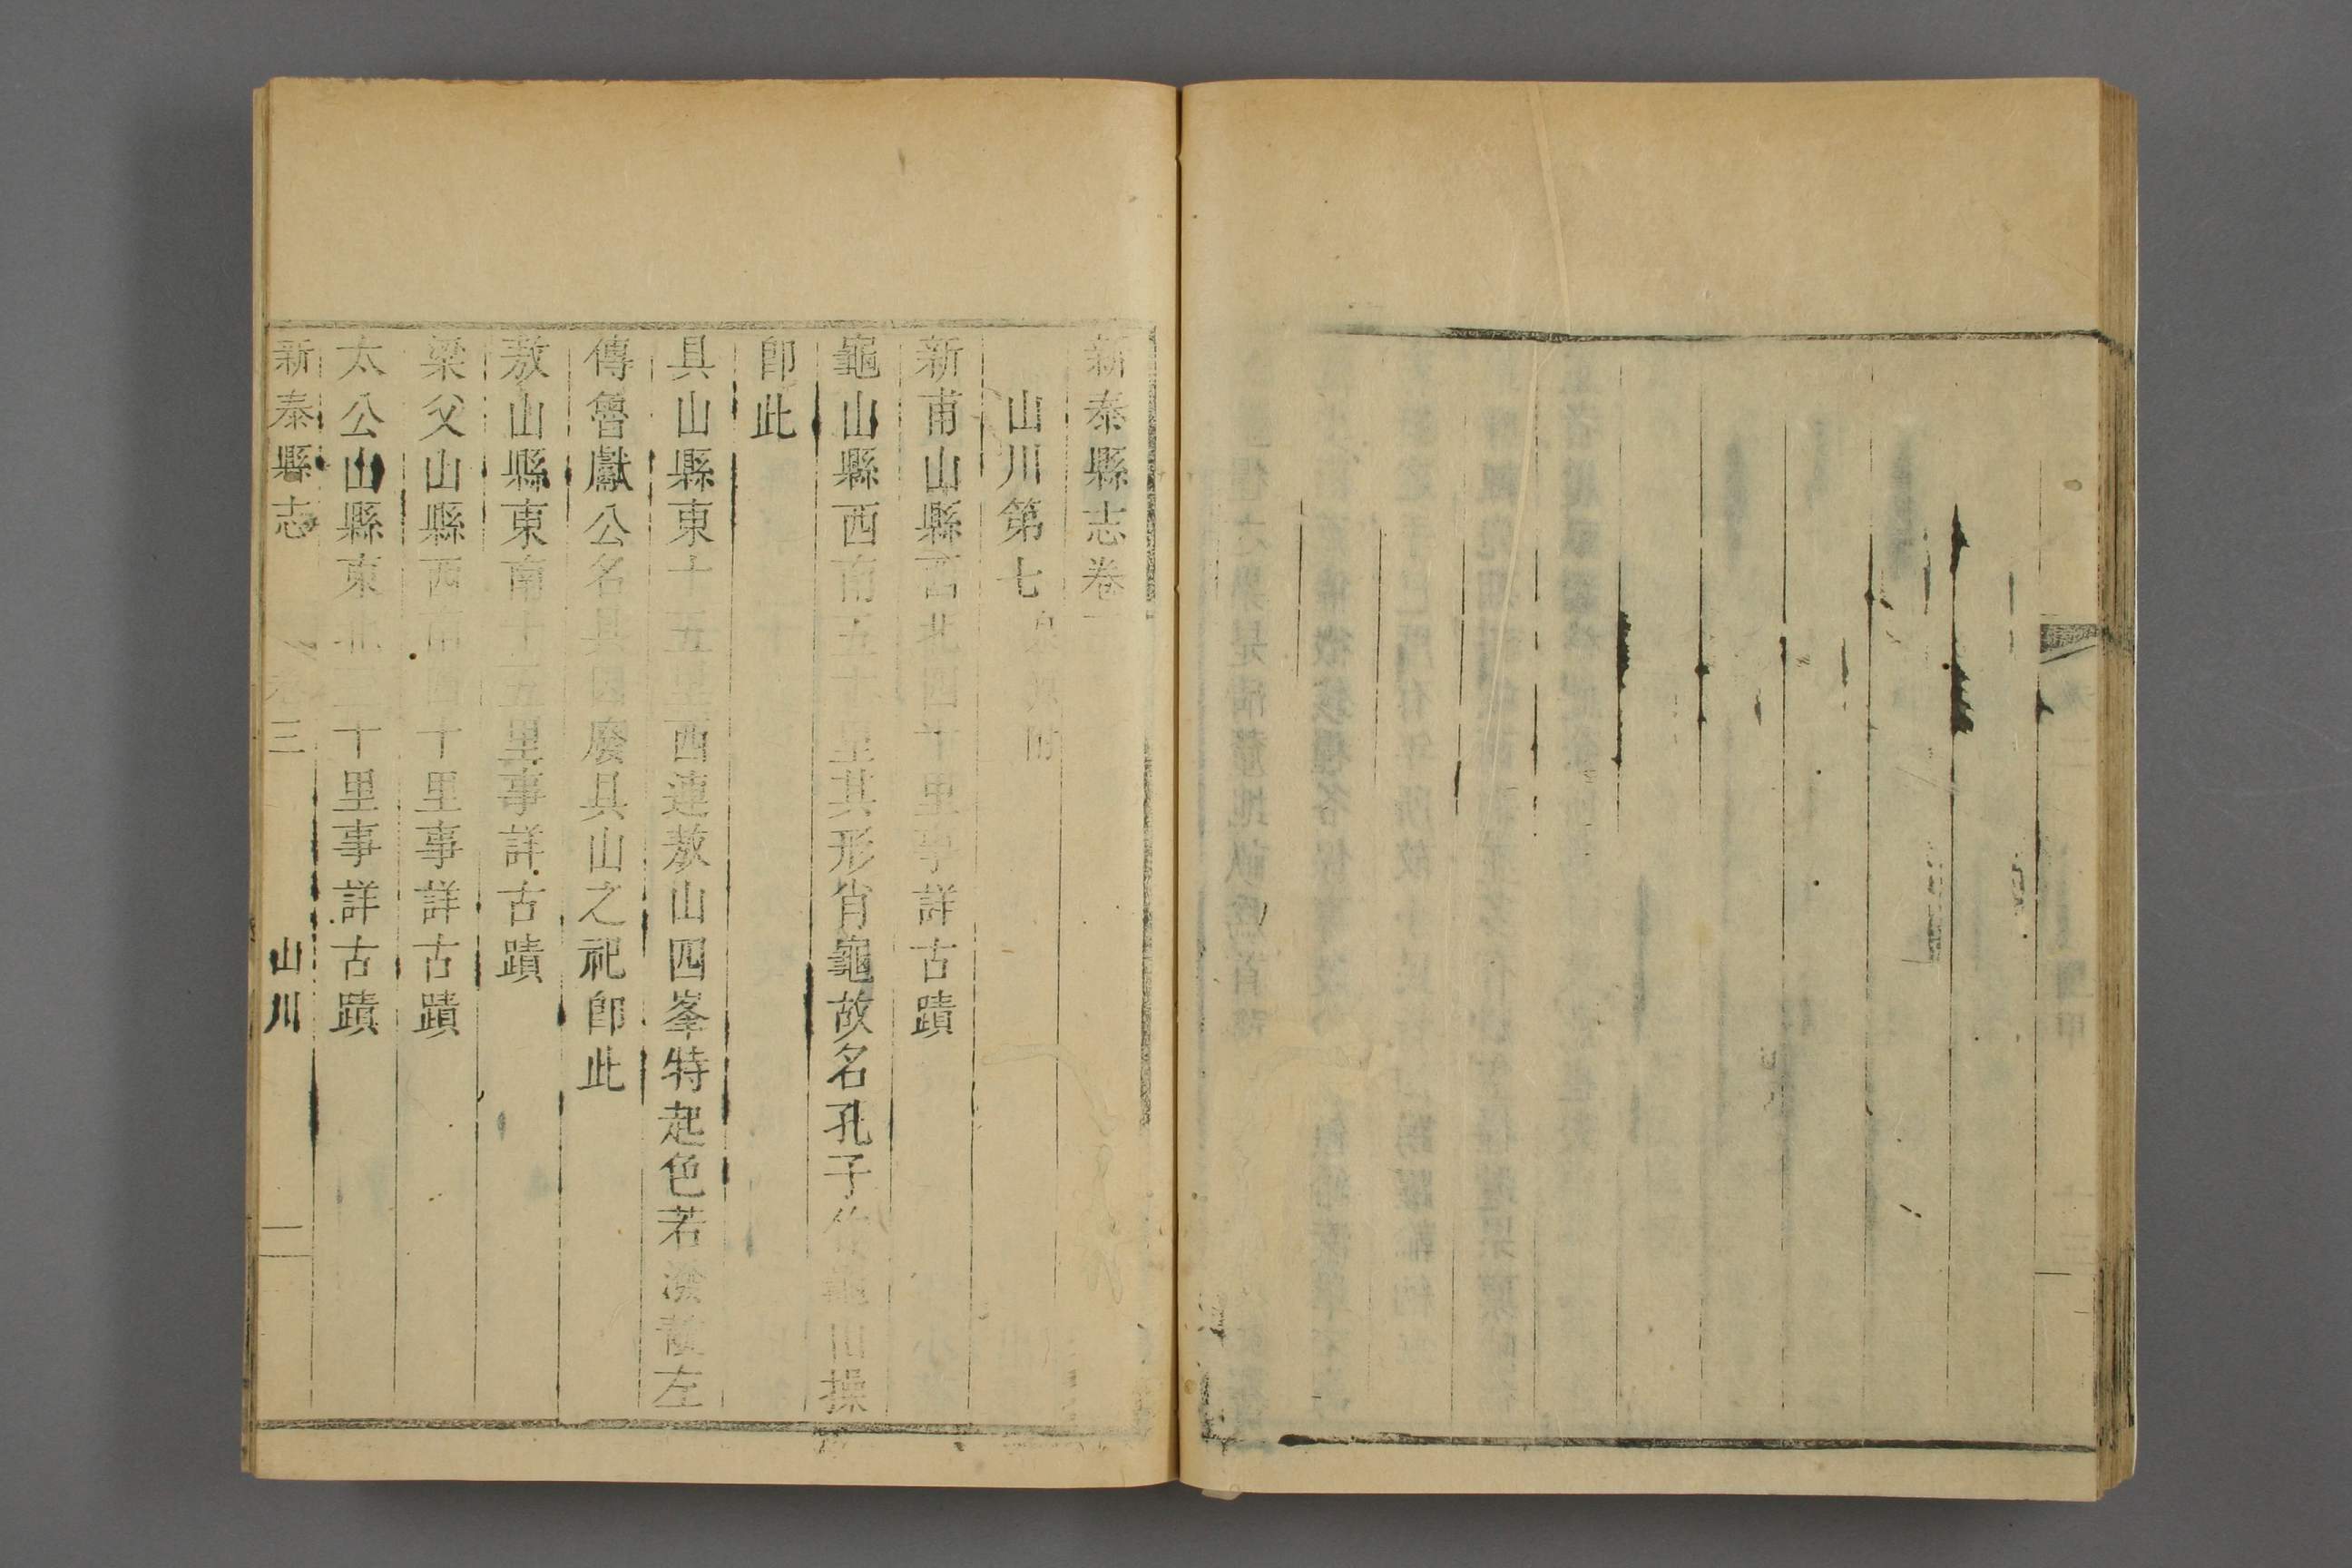 新泰縣志卷
山川第七 附
新甫山縣西北四十里事詳古蹟
龜山縣西南五十里其形肖龜故名孔子作龜山操
卽此
具山縣東十五里西連敖山四峯特起色若潑靛左
傳魯獻公名具因廢具山之祀卽此
敖山縣東南十五里事詳古蹟
梁父山縣西南四十里事詳古蹟
太公山縣東北三十里事詳古蹟
新泰縣志 卷三 山川 一